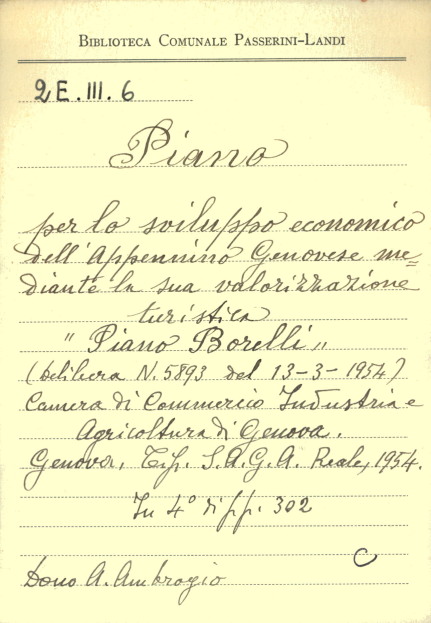 BIBLIOTECA COMUNALE PASSERINI-LANDI
2E.III.6
Piano
per lo sviluppo economico
dell'Appennino Genovese me=
diante la sua valorizzazione
turistica
"Piano Borelli"
(delibera N. 5893 del 13-3-1954)
Camera di Commercio Industria e
Agricoltura di Genova.
Genova, Tip. S.A.G.A. Reale, 1954.
In 4° di pp. 302
C
Dono A. Ambrogio